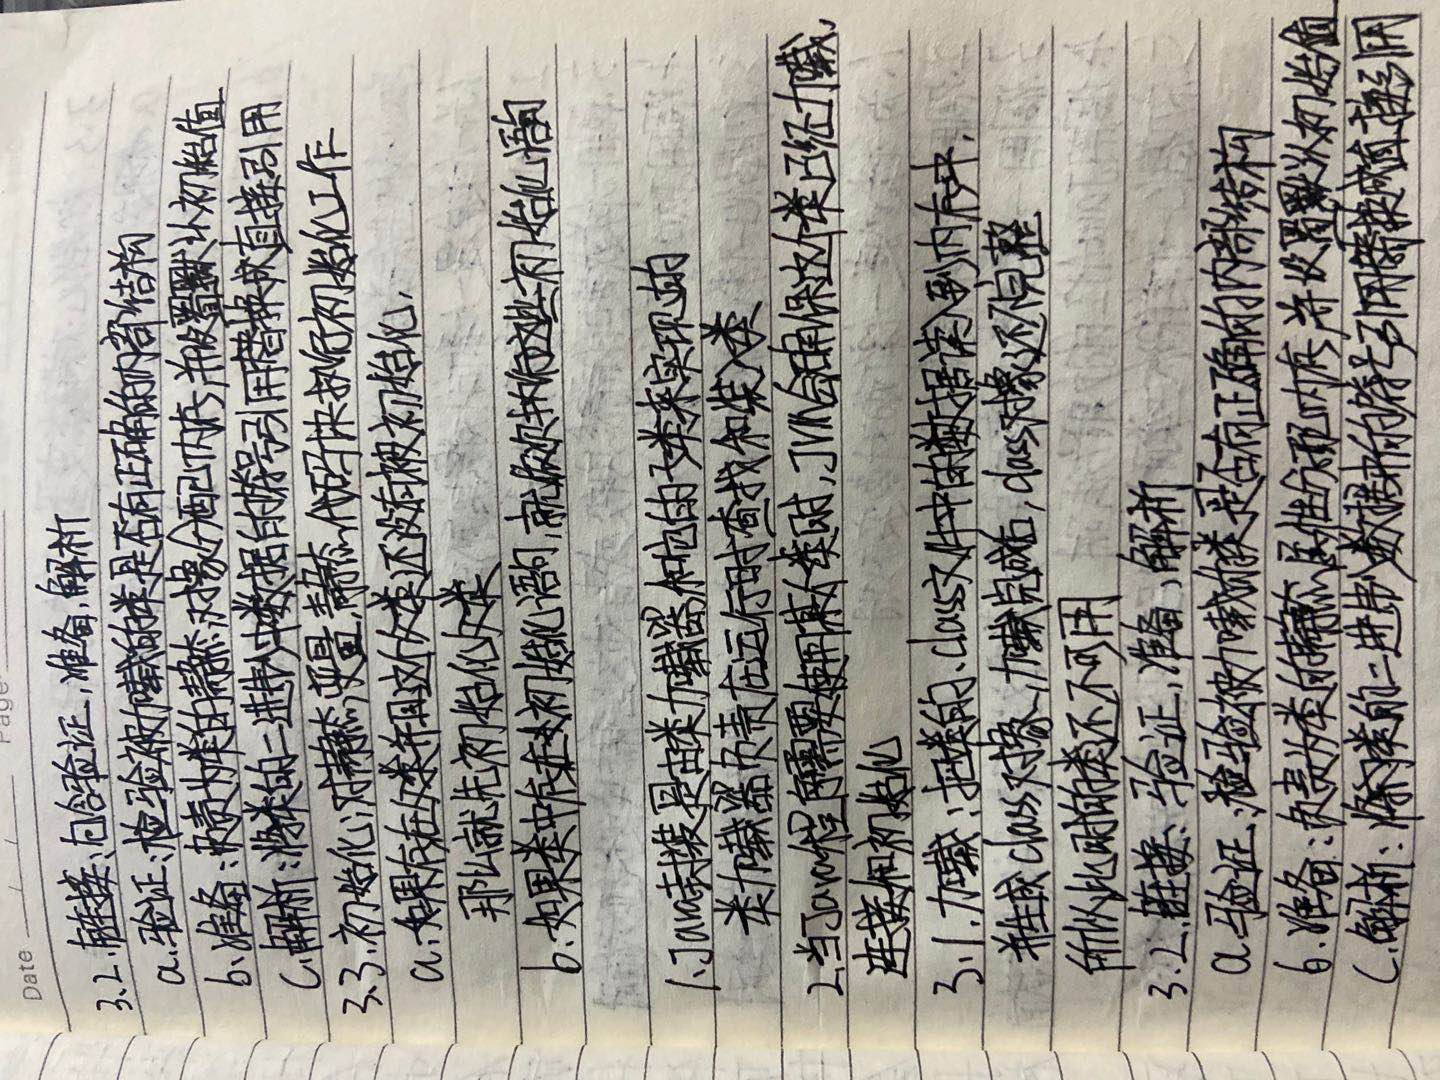 Date / / Page
3.2.链接:包含验证,准备,解析
a.验证:检验被加载的类是否有正确的内部结构
b.准备:负责为类的静态对象分配内存,并设置默认初始值
C.解析:将类的二进制中数据的符号引用替换成直接引用
3.3.初始化:对静态变量,静态代码块执行初始化工作
a.如果存在父类并且这个父类还没有被初始化,
那么就先初始化父类
b.如果类中存在初始化语句,就依次执行这些初始化语句
1.Java封装是由类加载器和它的子类来实现的
类加载器负责在运行时查找和装入类
2.当Java程序需要使用某个类时,JVM会确保这个类已经加载,
连接和初始化
3.1.加载:把类的.class文件中的数据读入到内存中,
并生成class对象,加载完成后,class对象还不完整
所以此时的类还不可用
3.2.链接:验证,准备,解析
a.验证:检验被加载的类是否有正确的内部结构
b.准备:负责为类的静态属性分配内存,并设置默认初始值
C.解析:将类的二进制数据中的符号引用替换成直接引用